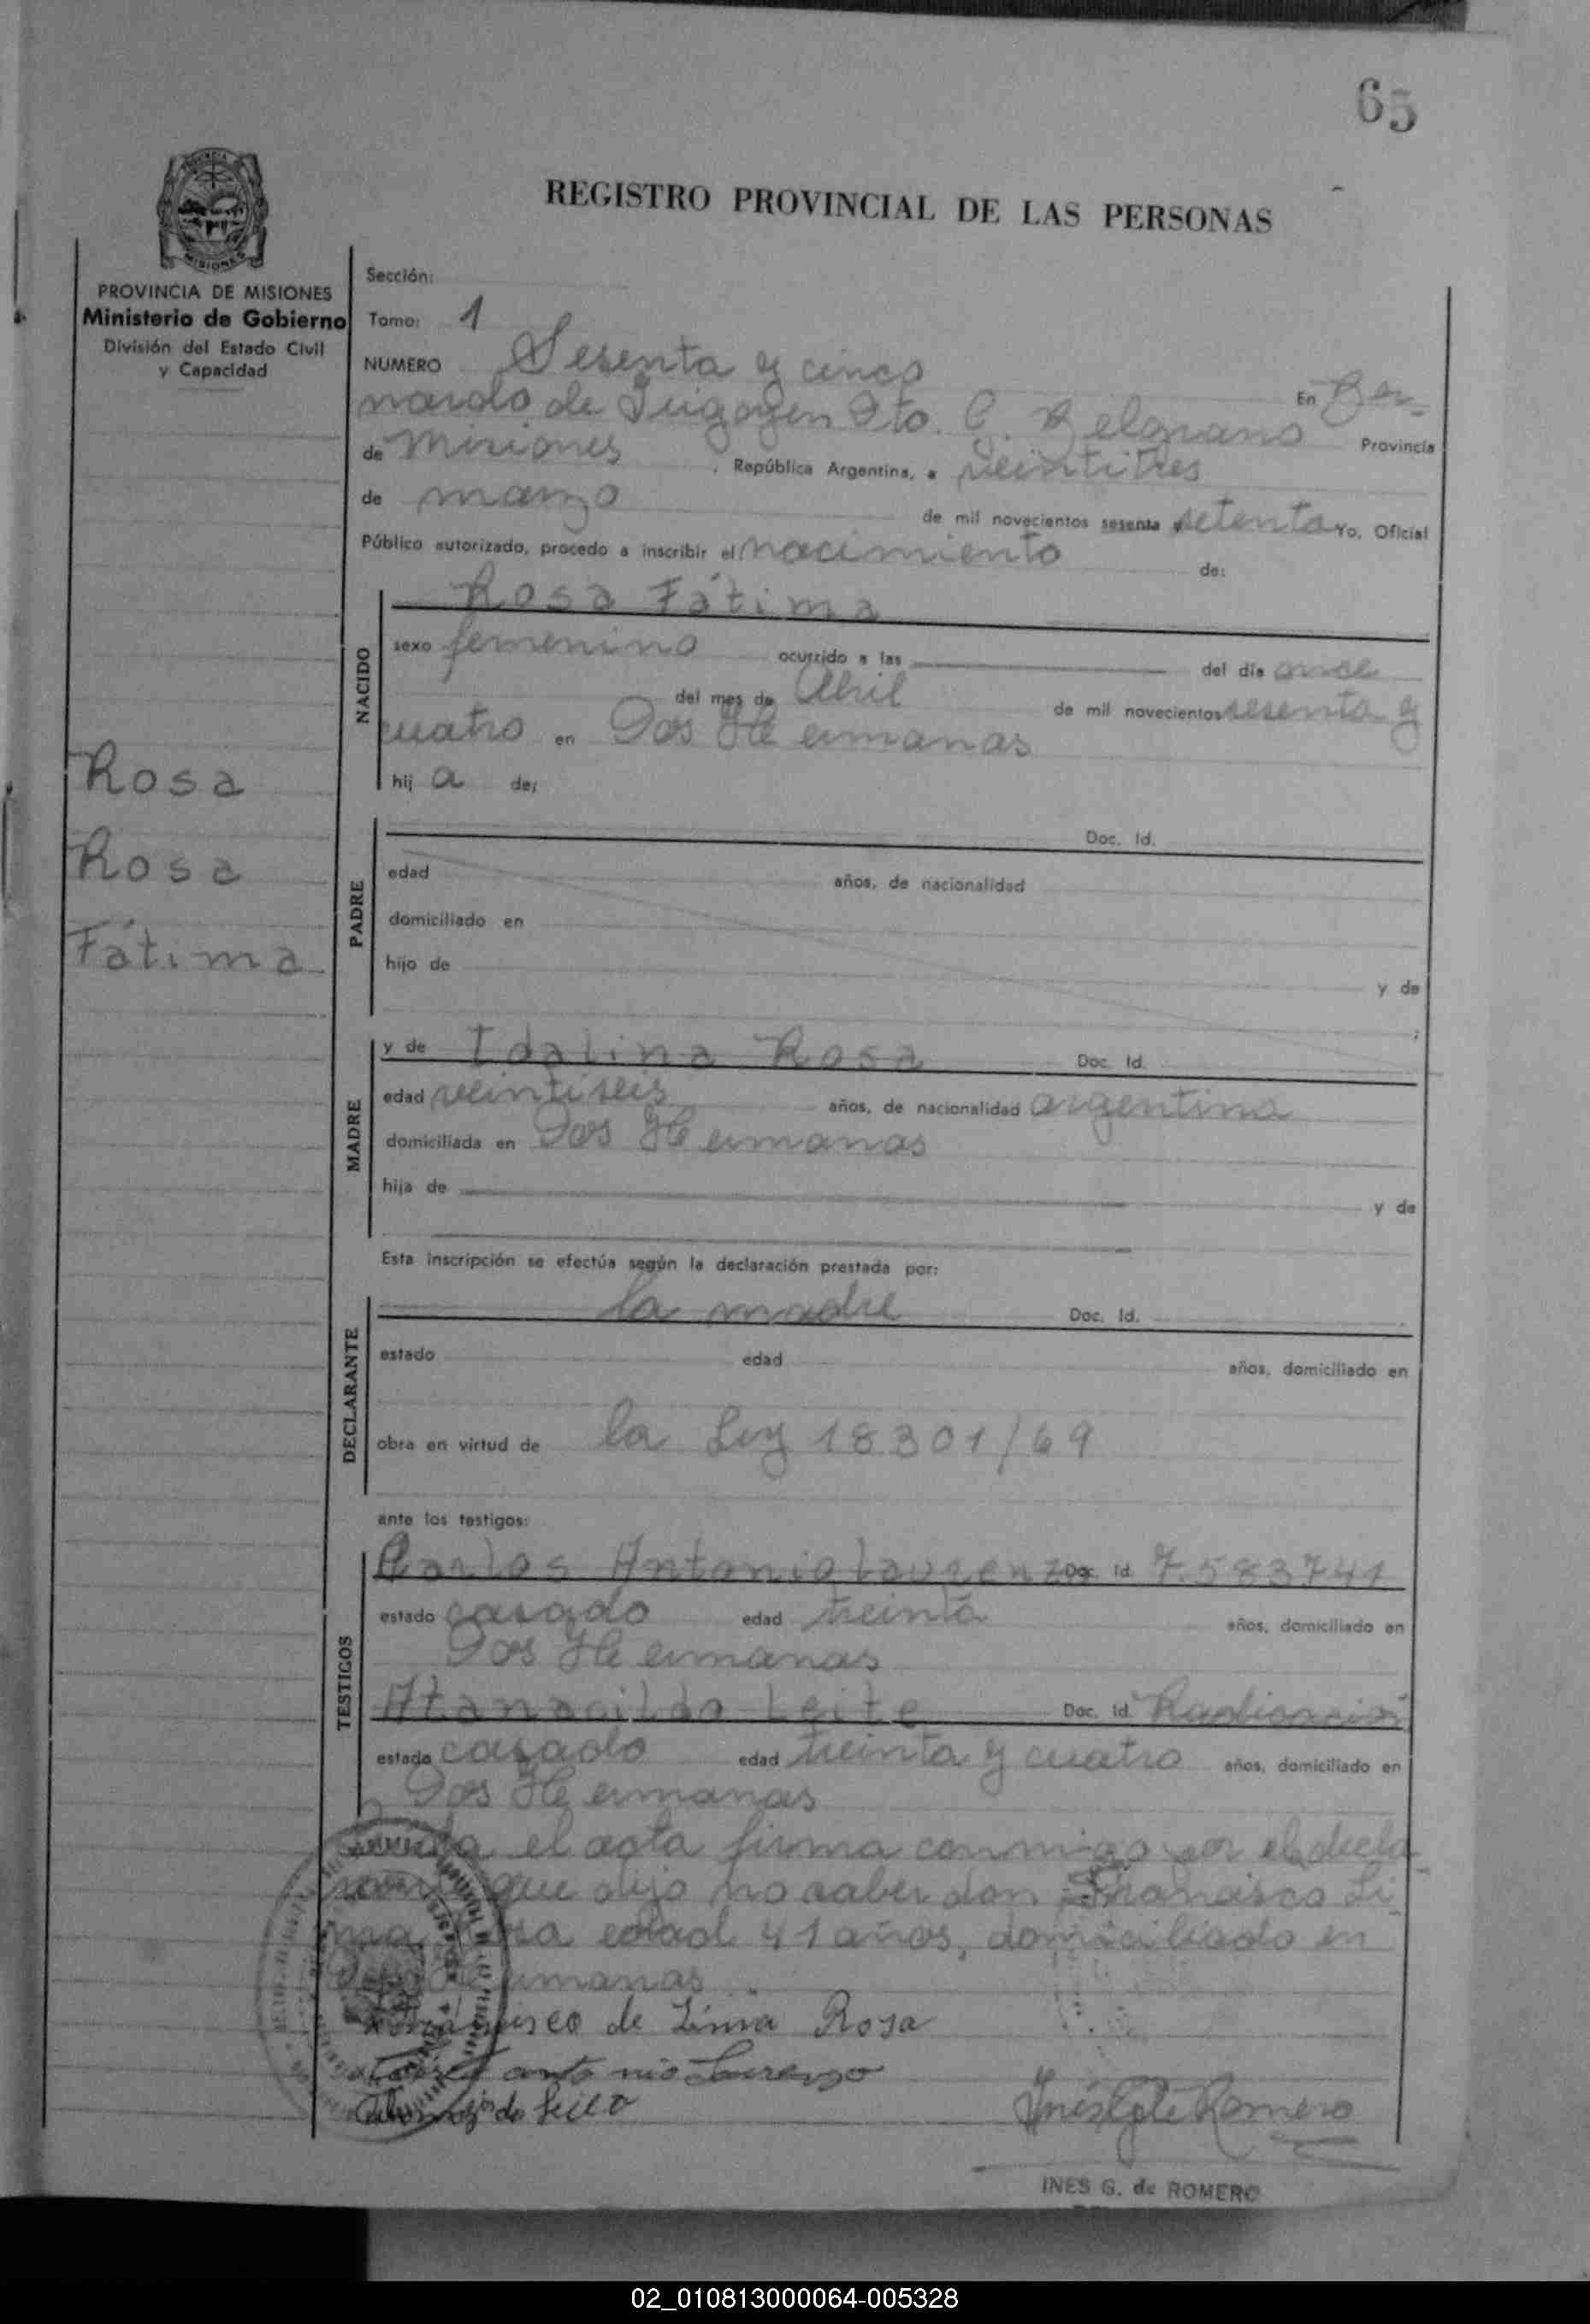 65
REGISTRO PROVINCIAL DE LAS PERSONAS
PROVINCIA DE MISIONES
Ministerio de Gobierno
División del Estado Civil
y Capacidad
Sección:
Tomo: 1
NUMERO Sesenta y cinco
En Ber-
nardo de Irigoyen Dto. G. Belgrano Provincia
de Misiones, República Argentina, a veintitres
de marzo de mil novecientos sesenta y setenta Yo, Oficial
Público autorizado, procedo a inscribir el nacimiento de:
NACIDO
Rosa Fátima
sexo femenino ocurrido a las del día once
del mes de Abril de mil novecientos sesenta y
cuatro en Dos Hermanas
hij a de:
Rosa
Rosa
Fátima
PADRE
Doc. Id.
edad años, de nacionalidad
domiciliado en
hijo de y de
;
MADRE
y de Idalina Rosa Doc. Id.
edad veintiseis años, de nacionalidad argentina
domiciliada en Dos Hermanas
hija de y de
Esta inscripción se efectúa según la declaración prestada por:
DECLARANTE
la madre Doc. Id.
estado edad años, domiciliado en
obra en virtud de la Ley 18301/69
ante los testigos:
TESTIGOS
Carlos Antonio Laurenzo Doc. Id. 7.583741
estado casado edad treinta años, domiciliado en
Dos Hermanas
Atanagildo Leite Doc. Id. Radicación
estado casado edad treinta y cuatro años, domiciliado en
Dos Hermanas
el acta firma conmigo por el decla-
rante que dijo no saber don Francisco Li-
ma Rosa edad 41 años, domiciliado en
Dos Hermanas
Francisco de Lima Rosa
antonio Laurenzo
Inés G de Romero
INES G. de ROMERO
02_010813000064-005328